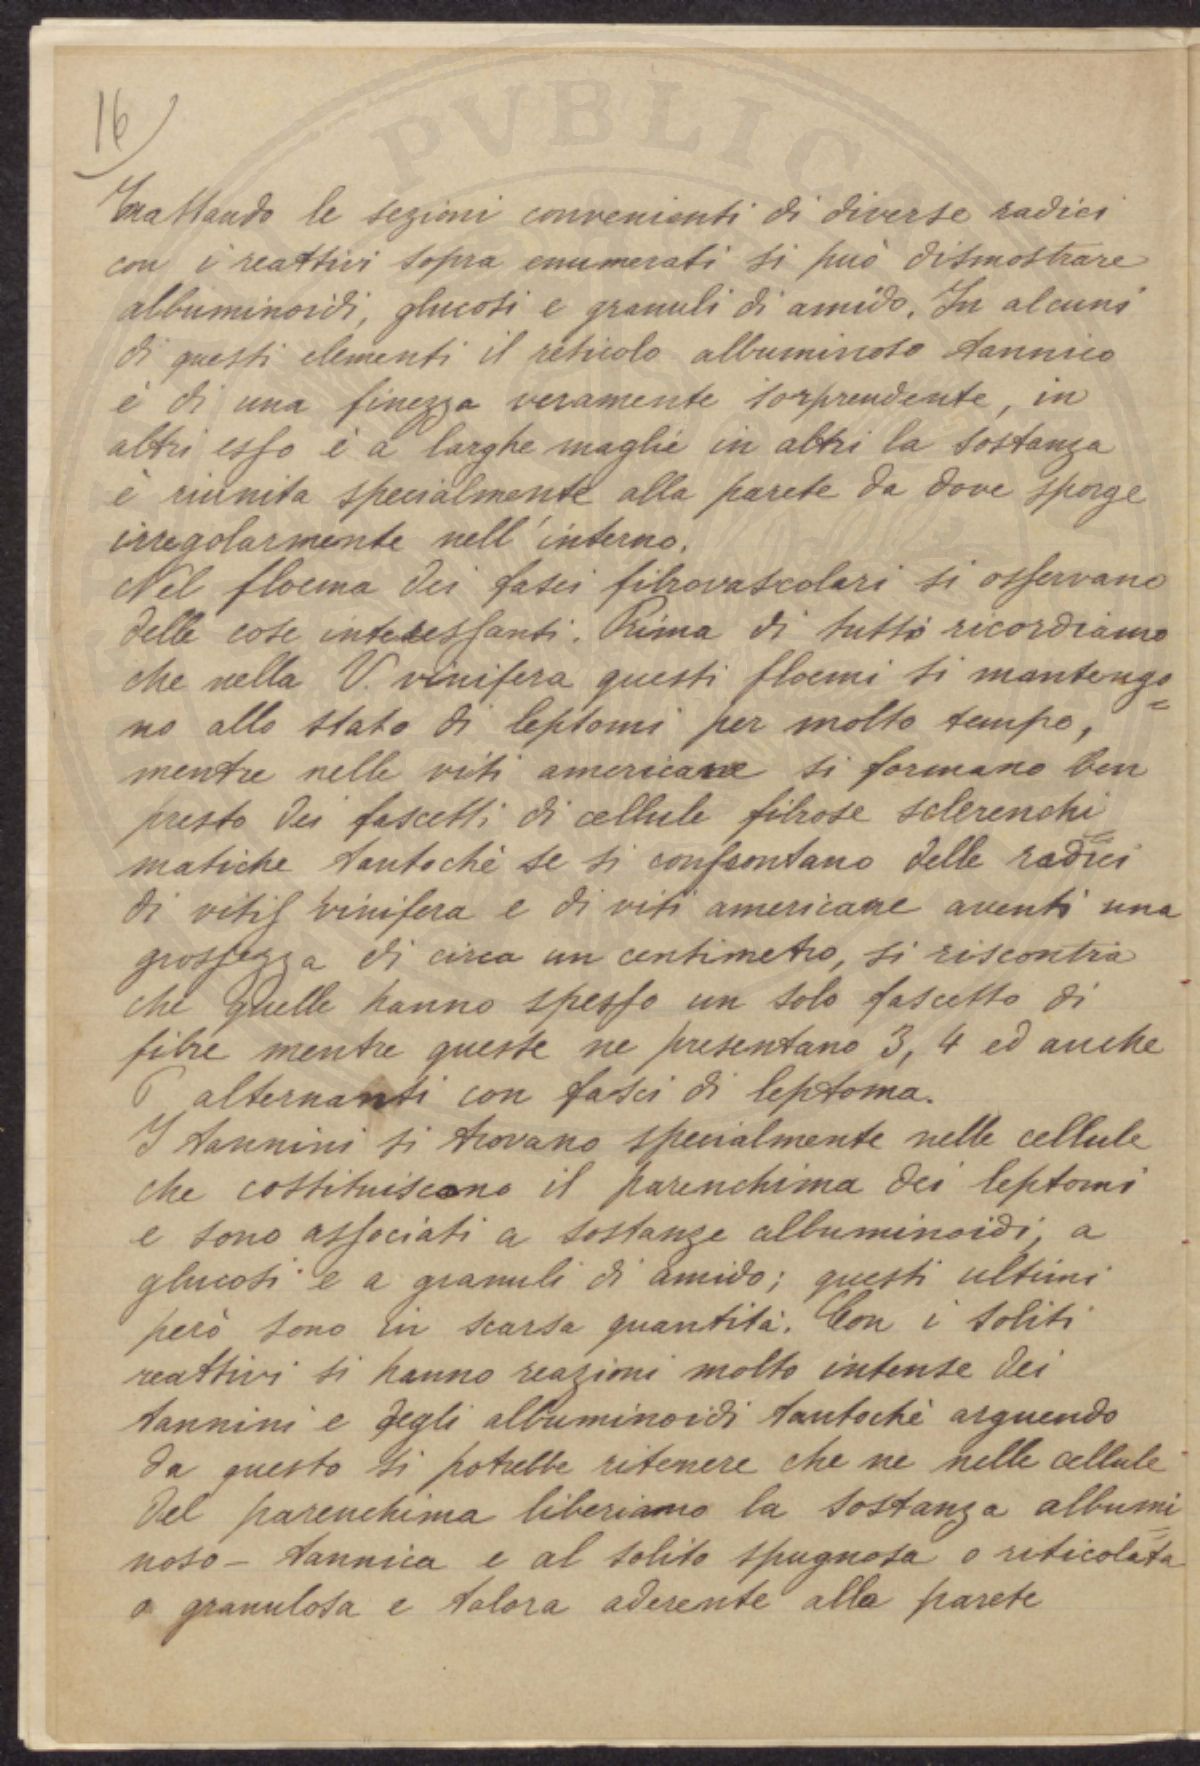 16
PVBLIC
Trattando le sezioni convenienti di diverse radici
con i reattivi sopra enumerati si può dismostrare
albuminoidi, glucosi e granuli di amido. In alcuni
di questi elementi il reticolo albuminoso tannico
è di una finezza veramente sorprendente, in
altri esso è a larghe maglie in altri la sostanza
è riunita specialmente alla parete da dove sporge
irregolarmente nell'interno.
Nel floema dei fasci fibrovascolari si osservano
delle cose interessanti. Prima di tutto ricordiamo
che nella V. vinifera questi floemi si mantengo=
no allo stato di leptomi per molto tempo,
mentre nelle viti americane si formano ben
presto dei fascetti di cellule fibrose sclerenchi=
matiche tantochè se si confrontano delle radici
di vitis vinifera e di viti americane aventi una
grossezza di circa un centimetro, si riscontra
che quelle hanno spesso un solo fascetto di
fibre mentre queste ne presentano 3, 4 ed anche
alternanti con fasci di leptoma.
I tannini si trovano specialmente nelle cellule
che costituiscono il parenchima dei leptomi
e sono associati a sostanze albuminoidi, a
glucosi e a granuli di amido; questi ultimi
però sono in scarsa quantità. Con i soliti
reattivi si hanno reazioni molto intense dei
tannini e degli albuminoidi tantochè arguendo
da questo si potrebbe ritenere che ne nelle cellule
del parenchima liberiamo la sostanza albumi=
noso - tannica e al solito spugnosa o reticolata
o granulosa e talora aderente alla parete